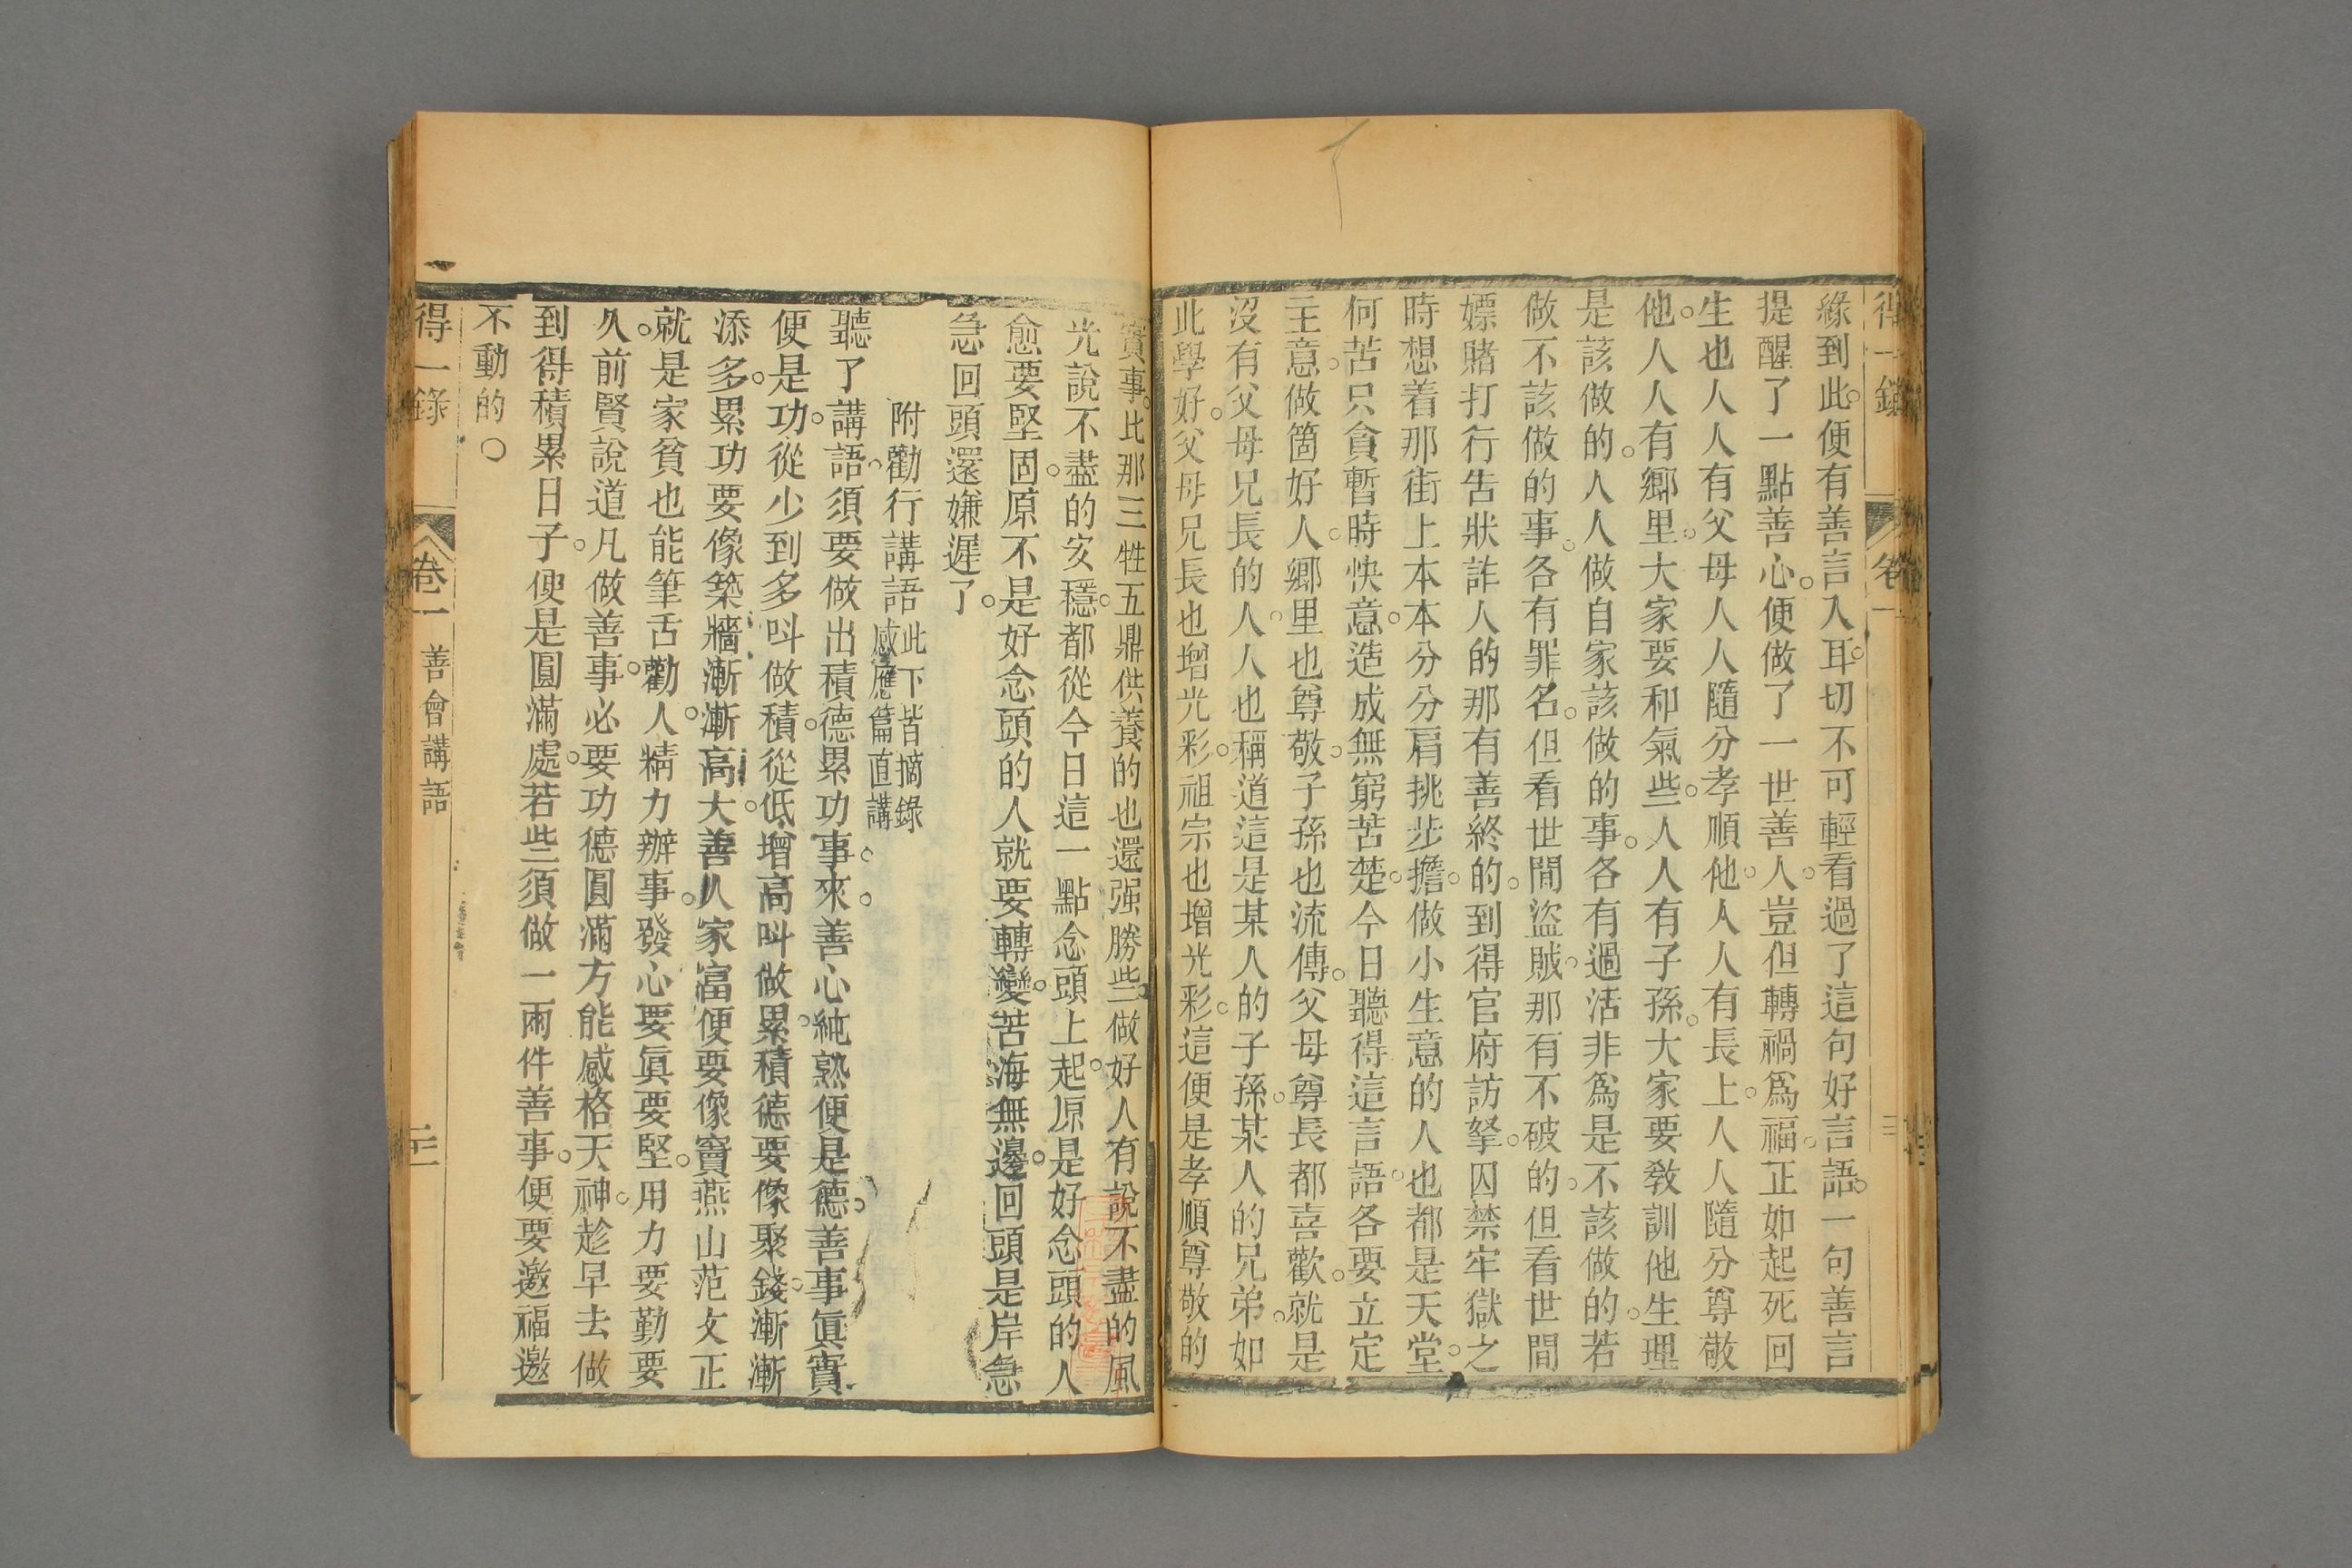 得一錄 卷一
緣到此。便有善言入耳。切不可輕看過了這句好言語。一句善言
提醒了一點善心。便做了一世善人。豈但轉禍爲福。正如起死回
生也。人人有父母。人人隨分孝順他。人人有長上。人人隨分尊敬
他。人人有鄉里。大家要和氣些。人人有子孫。大家要敎訓他。生理
是該做的。人人做自家該做的事。各有過活。非爲是不該做的。若
做不該做的事。各有罪名。但看世間盜賊。那有不破的。但看世間
嫖賭打行告狀詐人的。那有善終的。到得官府訪拏。囚禁牢獄之
時。想着那街上本本分分肩挑步擔。做小生意的人。也都是天堂。
何苦只貪暫時快意。造成無窮苦楚。今日聽得這言語。各要立定
主意。做箇好人。鄉里也尊敬。子孫也流傳。父母尊長都喜歡。就是
沒有父母兄長的人。人也稱道這是某人的子孫。某人的兄弟。如
此學好。父母兄長也增光彩。祖宗也增光彩。這便是孝順尊敬的
實事。比那三牲五鼎供養的也還强勝些。做好人有說不盡的風
光。說不盡的安穩。都從今日這一點念頭上起。原是好念頭的人
愈要堅固。原不是好念頭的人。就要轉變。苦海無邊。回頭是岸。急
急回頭還嫌遲了。
附勸行講語 此下皆摘錄
感應篇直講
聽了講語。須要做出積德累功事來。善心純熟便是德。善事眞實
便是功。從少到多叫做積。從低增高叫做累。積德要像聚錢。漸漸
添多。累功要像築牆。漸漸高大。善人家富便要像竇燕山范文正
就是家貧也能筆舌勸人。精力辦事。發心要眞要堅。用力要勤要
久。前賢說道凡做善事。必要功德圓滿方能感格天神。趁早去做
到得積累日子。便是圓滿處。若些須做一兩件善事。便要邀福。邀
不動的。○
得一錄 卷一 善會講語 二十一